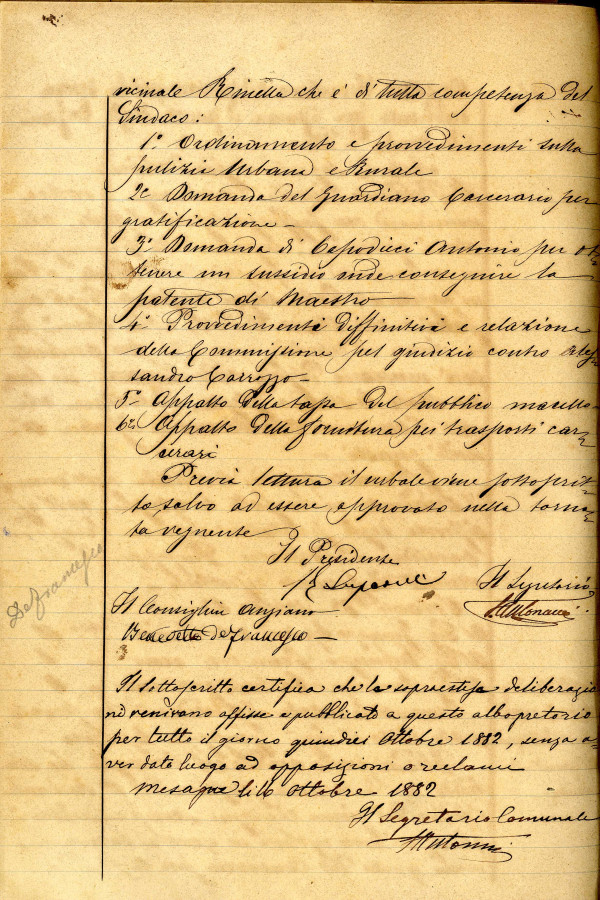 vicinale Rinella che è di tutta competenza del
Sindaco:
1° Ordinamento e provvedimenti sulla
pulizia Urbana e Rurale
2° Domanda del Guardiano Carcerario per
gratificazione –
3° Domanda di Capodieci Antonio per ot=
tenere un sussidio onde conseguire la
patente di Maestro
4° Provvedimenti diffinitivi e relazione
della Commissione pel giudizio contro Ales=
sandro Carrozzo –
5° Appalto della tassa del pubblico macello
6° Appalto della fornitura pei trasporti car=
cerari
Previa lettura il verbale viene sottoscrit=
to salvo ad essere approvato nella torna=
ta vegnente
Il Presidente
Il Segretario
Il Consiglier Anziano
Benedetto de Francesco –
De Francesco
Il sottoscritto certifica che le sopraestese deliberazio
ni venivano affisse e pubblicate a questo albo pretorio
per tutto il giorno quindici Ottobre 1882, senza a=
ver dato luogo ad opposizioni o reclami
Mesagne li 16 Ottobre 1882
Il Segretario Comunale